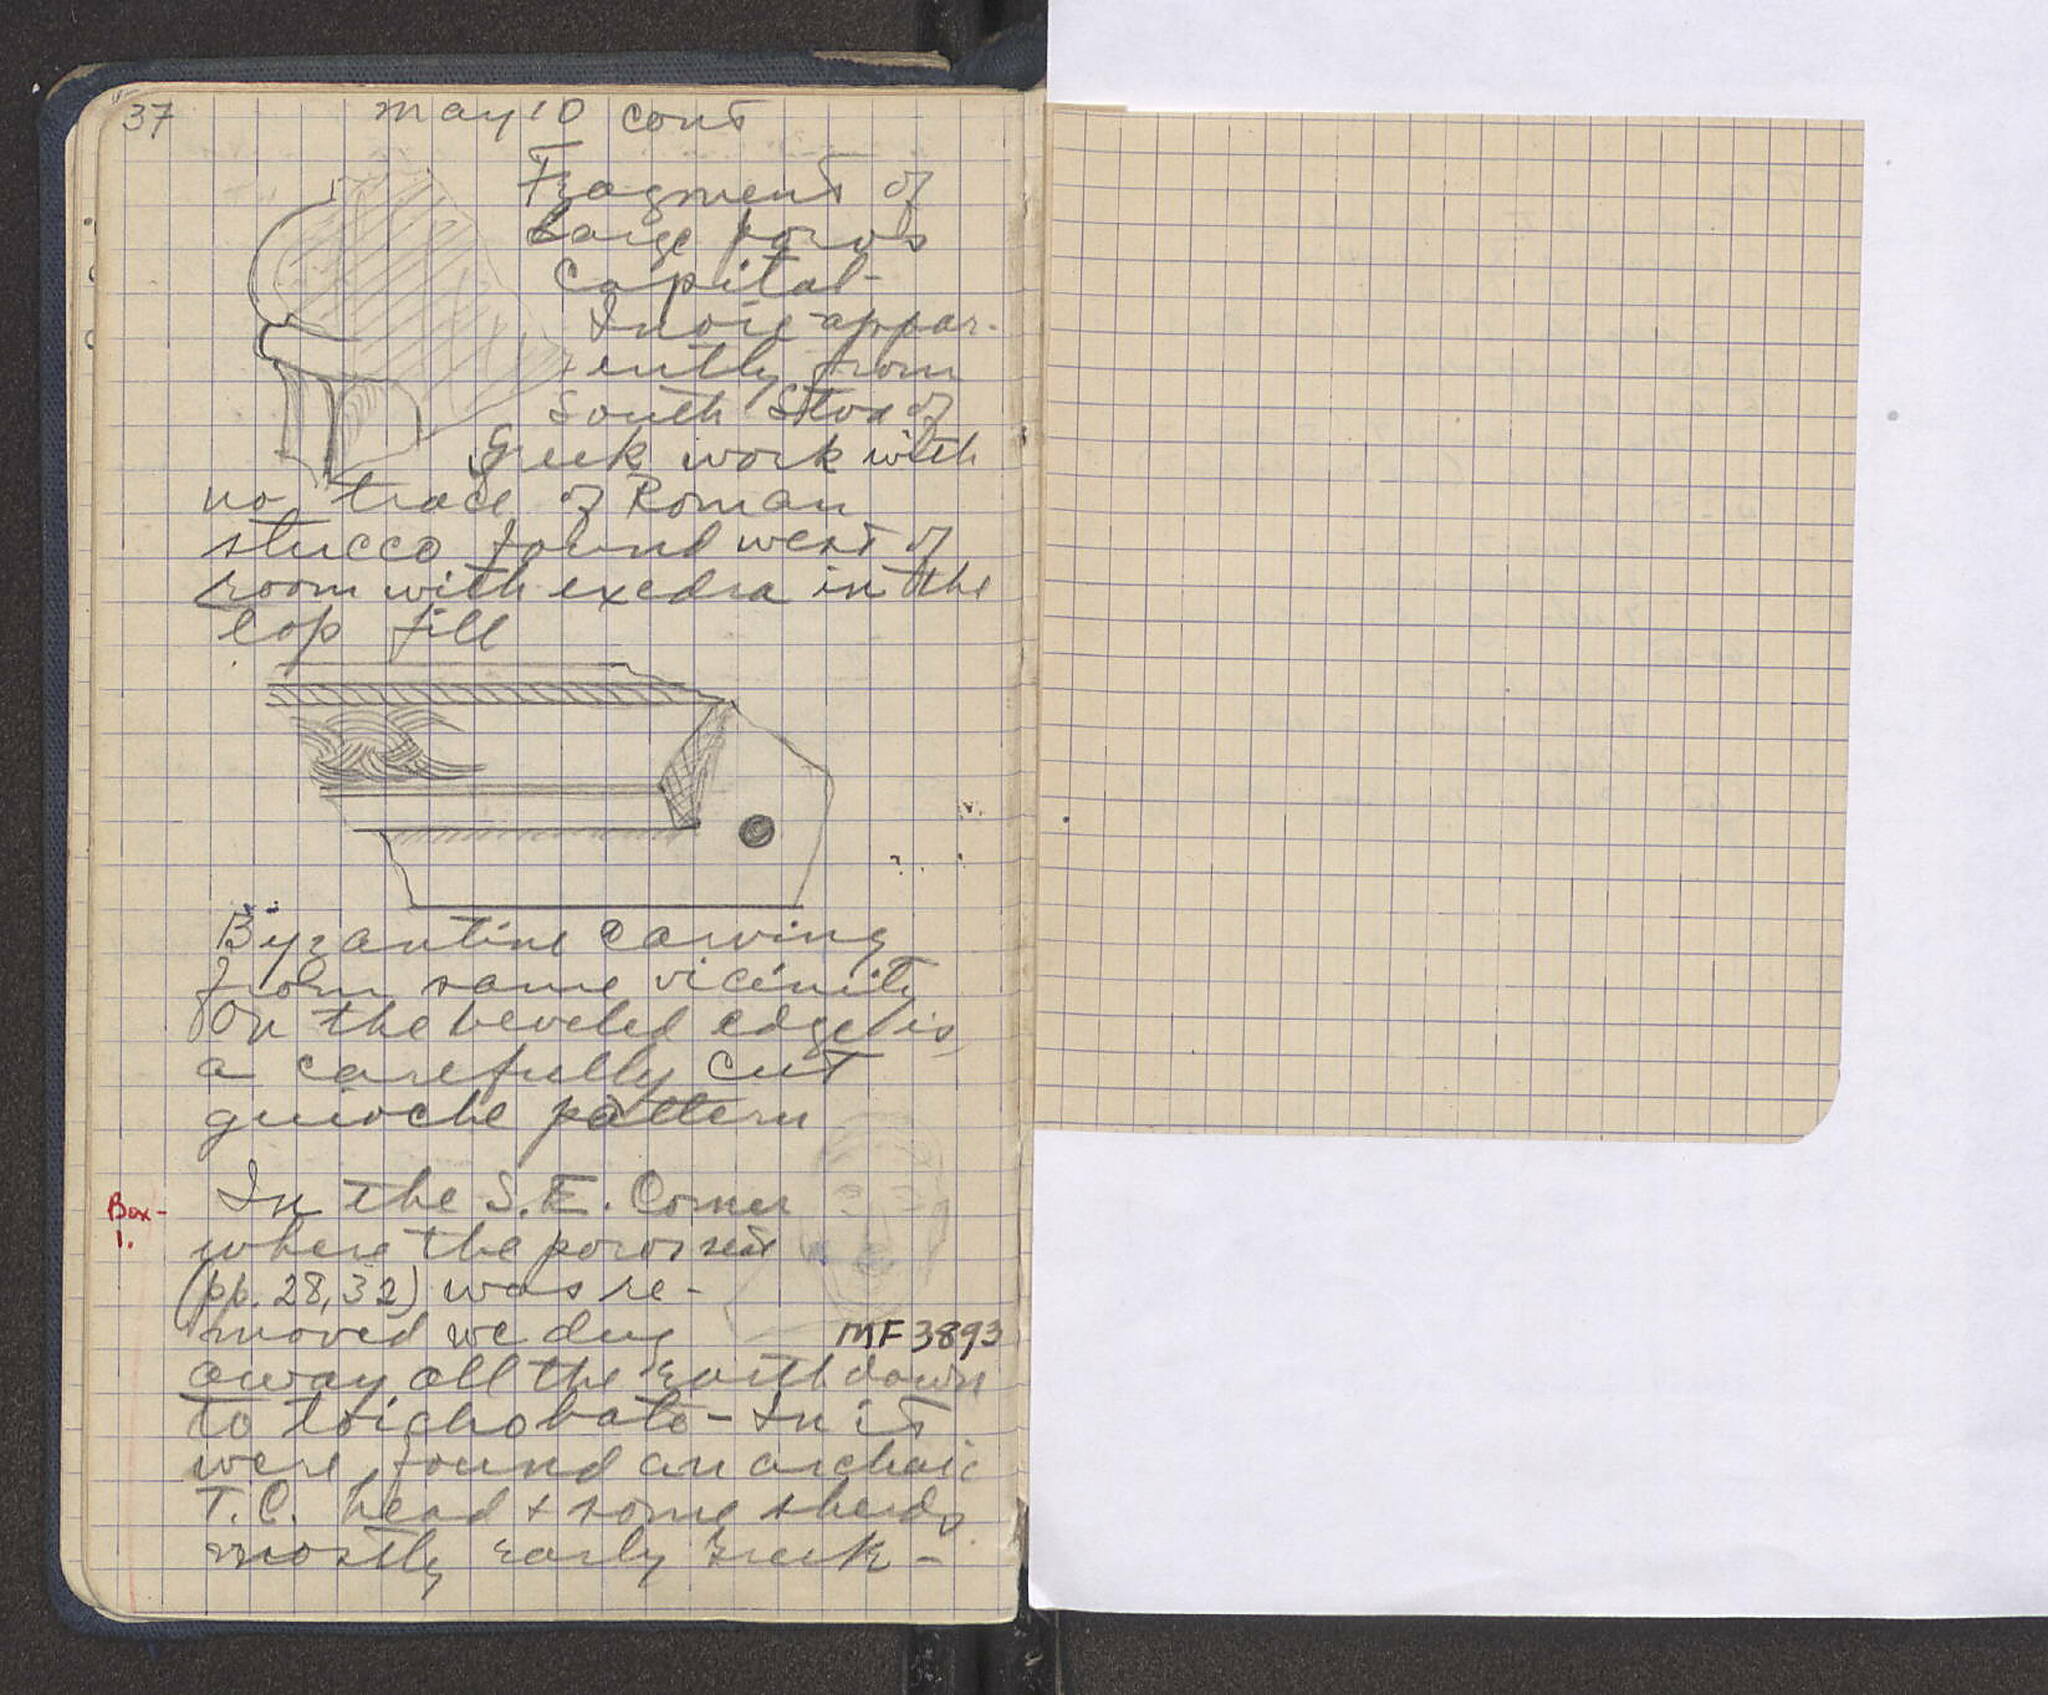 37
May 10 cont
Fragment of
large poros
Capital-
Ionic appar-
ently from
South Stoa of
Greek work with
no trace of Roman
stucco found west of
room with exedra in the
top fill
Byzantine carving
from same vicinity
On the beveled edge is
a carefully cut
guioche pattern
Box-
1.
In the S.E. Corner
where the poros seat
(pp. 28, 32) was re-
moved we dug
MF 3893
away all the earth down
to toichobate - In it
were found an archaic
T.C. head + some sherds
mostly early Greek -